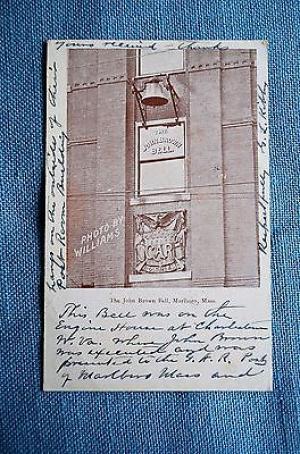 Yours received - Thanks
THE
JOHN BROWN
BELL.
PHOTO BY
WILLIAMS
GAR
The John Brown Bell, Marlboro, Mass.
This Bell was on the
Engine House at Charlestown
W Va. when John Brown
was executed and was
presented to the G.A.R. Post
of Marlboro Mass and
hangs on the outside of their
Post Room Building
Respectfully